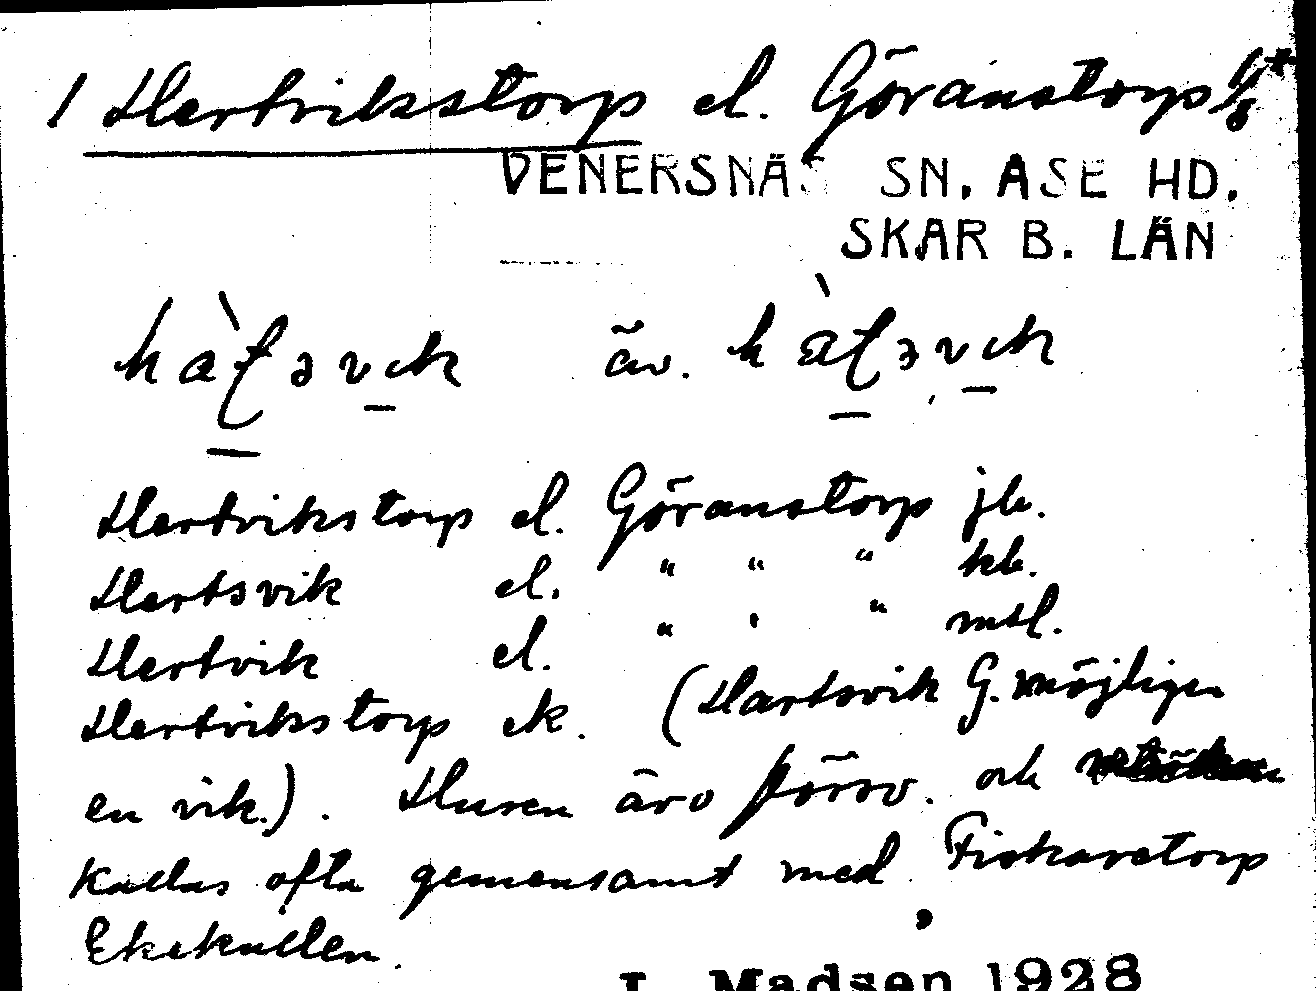 1 Hertvikstorp el. Göranstorp
VENERSNÄS SN. ASE HD.
SKAR B. LÄN
äv.
Hertvikstorp el. Göranstorp jb.
Hertsvik el. " " " kb.
Hertvik el. " " " mtl.
Hertvikstorp ek. (Hartsvik G. möjligen
en vik.). Husen äro försv. och
kallas ofta gemensamt med Fiskaretorp
Ekekullen.
I. Madsen 1928